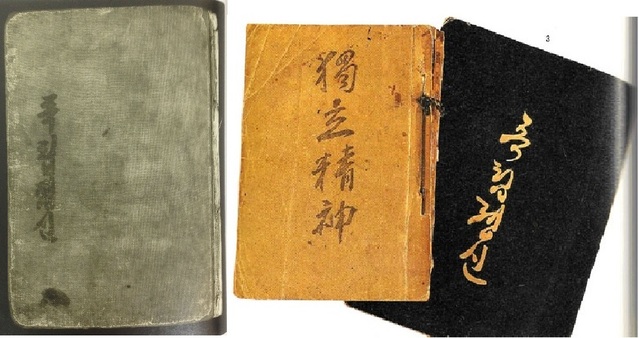 독립졍신
獨立精神
3
독립졍신